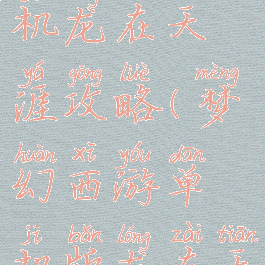 机龙在天
yá gōng lüè mèng
涯攻略(梦
huàn xī yóu dān
幻西游单
jī bǎn lóng zài tiān
机版龙在天